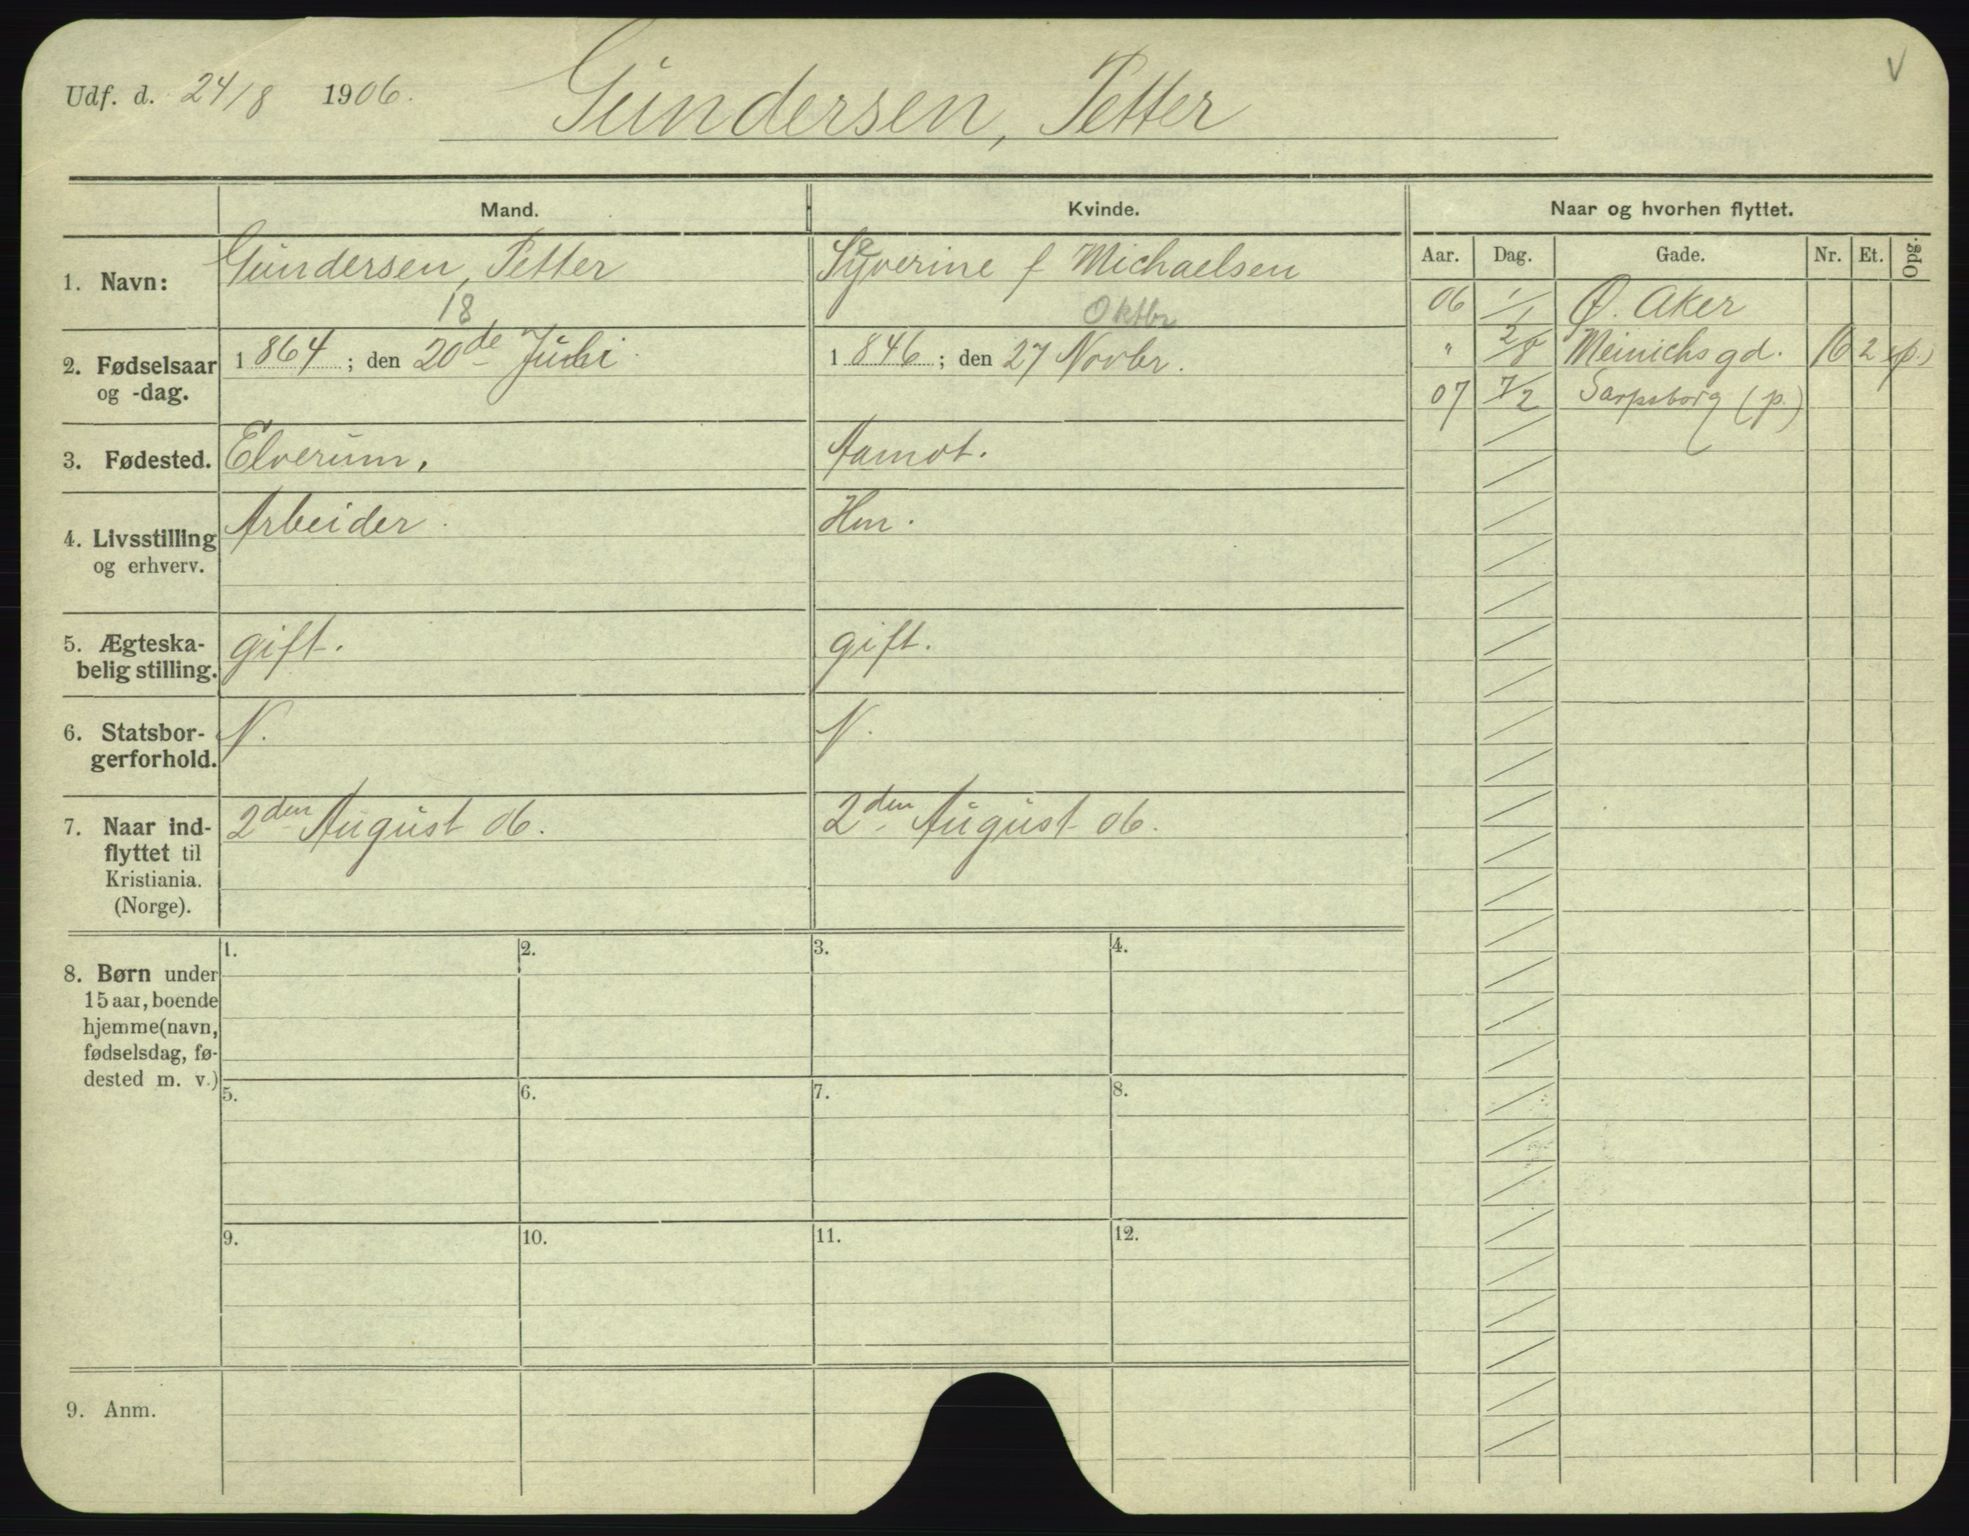 Udf. d. 24/8 1906.
Gundersen, Petter
V
Mand.
Kvinde.
Naar og hvorhen flyttet.
Aar. Dag. Gade. Nr. Et. Opg.
1. Navn:
Gundersen, Petter
Syverine f Michaelsen
18
Oktbr
2. Fødselsaar
og -dag.
1864; den 20de
1846; den 27 Novbr.
3. Fødested.
Elverum.
Aamot.
4. Livsstilling
og erhverv.
Arbeider.
Hm.
5. Ægteska-
belig stilling.
gift.
gift.
6. Statsbor-
gerforhold.
N.
N.
7. Naar ind-
flyttet til
Kristiania.
(Norge).
2den August 06.
2den August 06.
06 1/1 Ø. Aker
" 2/8 Meinichsgd. 16 2 (p.)
07 7/2 Sarpsborg (p.)
8. Børn under
15 aar, boende
hjemme (navn,
fødselsdag, fø-
dested m. v.)
1. 2. 3. 4.
5. 6. 7. 8.
9. 10. 11. 12.
9. Anm.